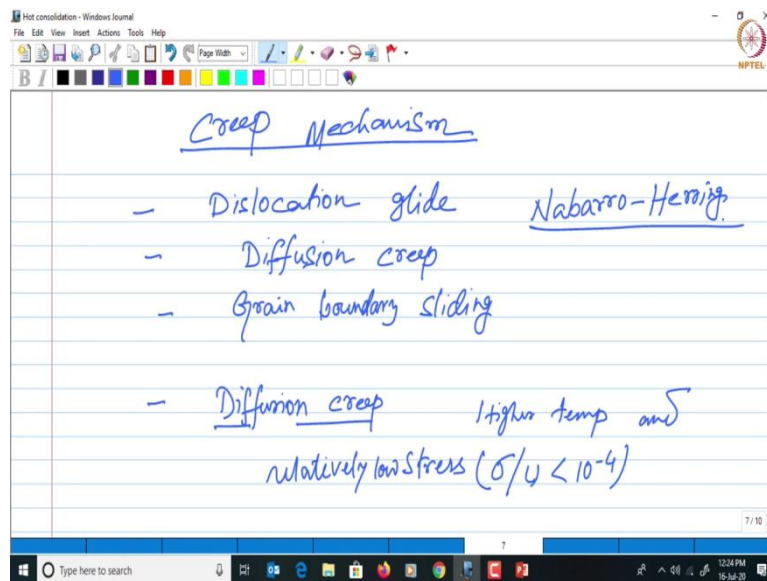 Hot consolidation - Windows Journal
File Edit View Insert Actions Tools Help
Page Width
NPTEL
B I
Creep Mechanism
- Dislocation glide Nabarro-Herring
- Diffusion creep
- Grain boundary sliding
- Diffusion creep Higher temp and
relatively low stress (σ/μ < 10⁻⁴)
7/10
7
Type here to search
12:24 PM
16-Jul-20